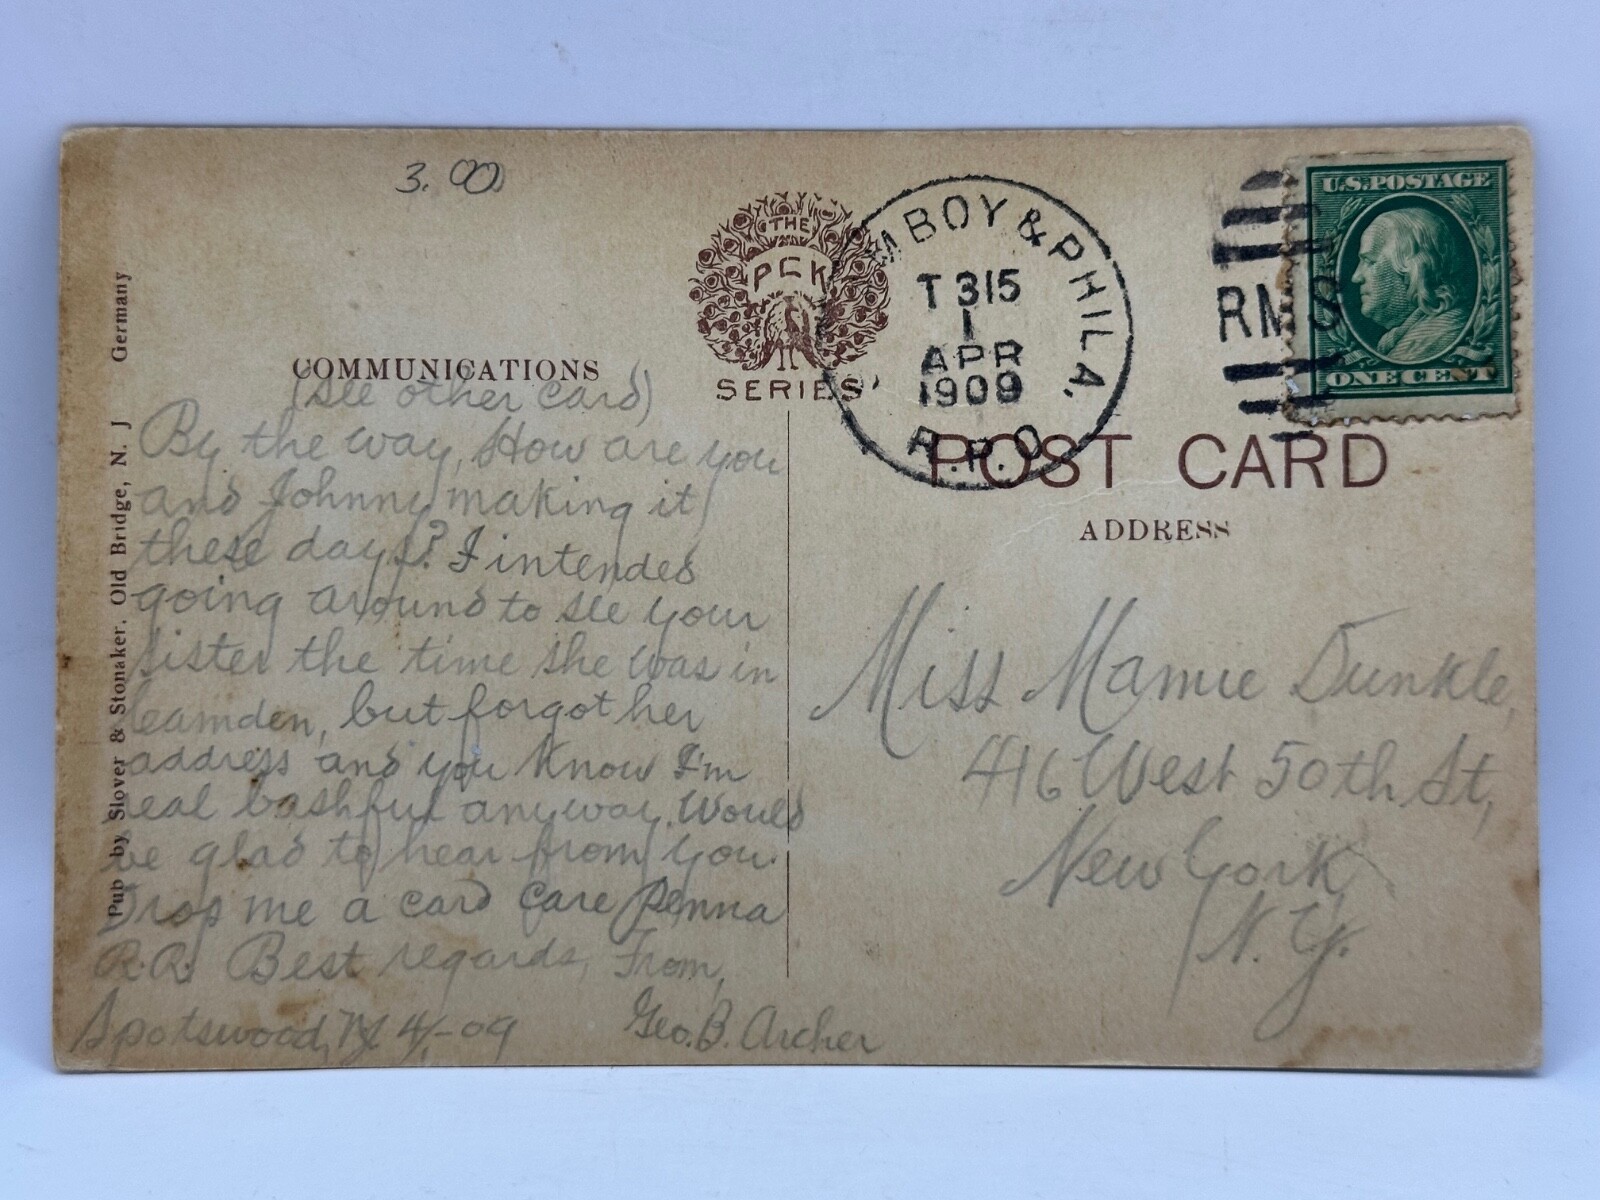 3.00
THE
PCK
SERIES
MBOY & PHILA.
T 315
1
APR
1909
R.P.O.
RMS
U.S. POSTAGE
ONE CENT
POST CARD
ADDRESS
COMMUNICATIONS
(See other card)
By the way, How are you
and Johnny making it
these days? I intended
going around to see your
sister the time she was in
Camden, but forgot her
address and you know I'm
real bashful anyway. Would
be glad to hear from you.
Drop me a card care Penna
R.R. Best regards, From,
Spotswood, N.J. 4/-09 Geo. B. Archer
Miss Mamie Dunkle,
416 West 50th St,
New York,
N.Y.
Pub by Slover & Stonaker. Old Bridge, N. J Germany